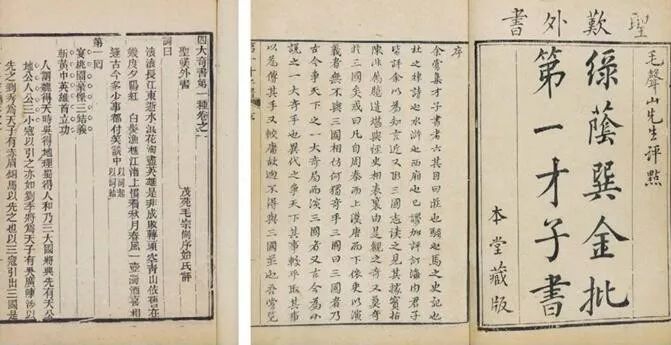 聖歎外書
毛聲山先生評點
金批
第一才子書
本堂藏版
序
余嘗集才子書者六其目曰莊也騷也馬之史記也
杜之律詩也水滸也西廂也已謬加評訂海內君子
皆許余以為知言近又取三國志讀之見其據實指
陳非屬臆造堪與經史相表裏由是觀之奇又莫奇
於三國矣或曰凡自周秦而上漢唐而下依史以演
義者無不與三國相仿何獨奇乎三國曰三國者乃
古今爭天下之一大奇局而演三國者又古今為小
說之一大奇手也異代之爭天下其事較平取其事
以為傳其手又較庸故迥不得與三國並也吾嘗覽
四大奇書第一種卷之一
聖歎外書 茂苑毛宗崗序始氏評
詞曰
滾滾長江東逝水浪花淘盡英雄是非成敗轉頭空青山依舊在
幾度夕陽紅 白髮漁樵江渚上慣看秋月春風一壺濁酒喜相
逢古今多少事都付笑談中以詞起以詞結
第一回
宴桃園豪傑三結義
斬黃巾英雄首立功
人謂魏得天時吳得地理蜀得人和乃三大國將興先有天公
地公人公三小寇以引之亦如劉季將為天子有吳廣陳涉以
先之劉秀將為天子有赤眉銅馬以先之也以三寇引出三國是